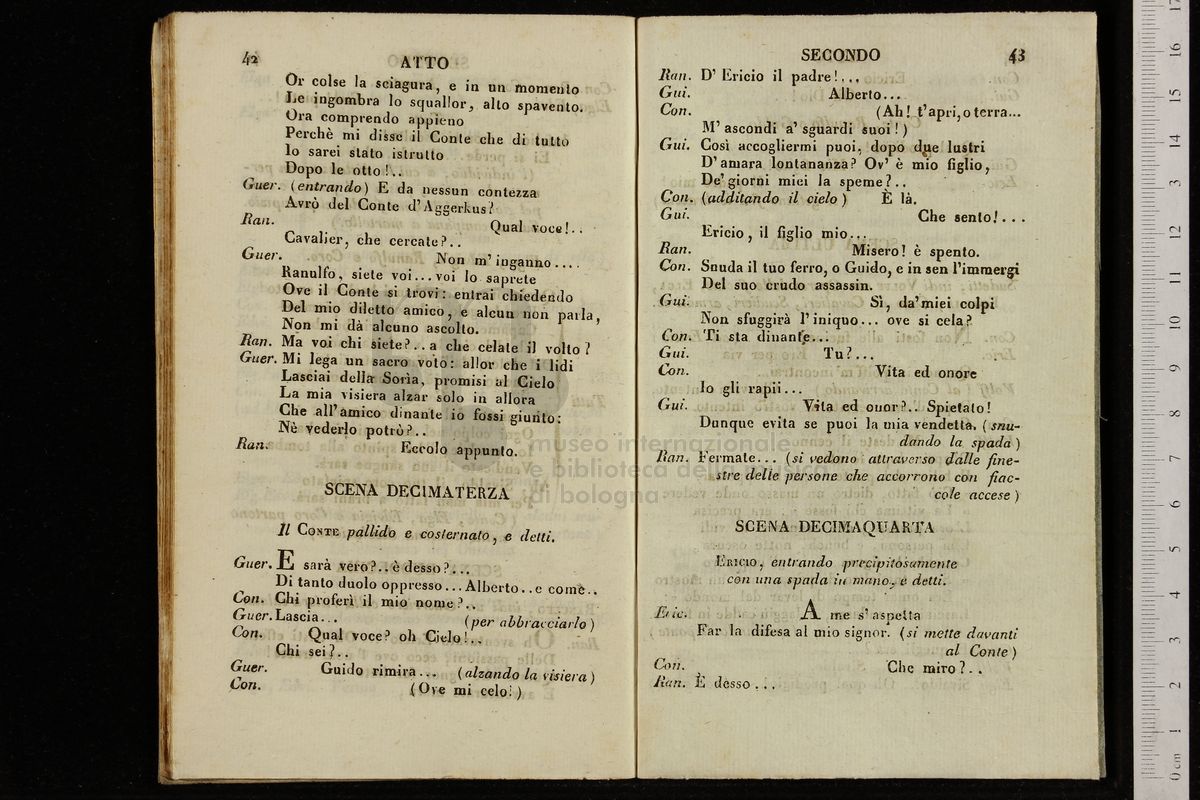 42
ATTO
Or colse la sciagura, e in un momento
Le ingombra lo squallor, alto spavento.
Ora comprendo appieno
Perchè mi disse il Conte che di tutto
Io sarei stato istrutto
Dopo le otto!..
Guer. (entrando) E da nessun contezza
Avrò del Conte d'Aggerkus?
Ran. Qual voce!..
Cavalier, che cercate?..
Guer. Non m'inganno....
Ranulfo, siete voi...voi lo saprete
Ove il Conte si trovi: entrai chiedendo
Del mio diletto amico, e alcun non parla,
Non mi dà alcuno ascolto.
Ran. Ma voi chi siete?..a che celate il volto?
Guer. Mi lega un sacro voto: allor che i lidi
Lasciai della Sorìa, promisi al Cielo
La mia visiera alzar solo in allora
Che all'amico dinante io fossi giunto:
Nè vederlo potrò?..
Ran. Eccolo appunto.
SCENA DECIMATERZA
Il CONTE pallido e costernato, e detti.
Guer. E sarà vero?..è desso?...
Di tanto duolo oppresso...Alberto..e come..
Con. Chi proferì il mio nome?..
Guer. Lascia... (per abbracciarlo)
Con. Qual voce? oh Cielo!..
Chi sei?..
Guer. Guido rimira... (alzando la visiera)
Con. (Ove mi celo!)
SECONDO
43
Ran. D'Ericio il padre!...
Gui. Alberto...
Con. (Ah! t'apri, o terra...
M'ascondi a' sguardi suoi!)
Gui. Così accogliermi puoi, dopo due lustri
D'amara lontananza? Ov' è mio figlio,
De' giorni miei la speme?..
Con. (additando il cielo) È là.
Gui. Che sento!...
Ericio, il figlio mio...
Ran. Misero! è spento.
Con. Snuda il tuo ferro, o Guido, e in sen l'immergi
Del suo crudo assassin.
Gui. Sì, da'miei colpi
Non sfuggirà l'iniquo... ove si cela?
Con. Ti sta dinante...
Gui. Tu?...
Con. Vita ed onore
Io gli rapii...
Gui. Vita ed onor?.. Spietato!
Dunque evita se puoi la mia vendetta. (snu-
dando la spada)
Ran. Fermate... (si vedono attraverso dalle fine-
stre delle persone che accorrono con fiac-
cole accese)
SCENA DECIMAQUARTA
ERICIO, entrando precipitosamente
con una spada in mano, e detti.
Eric. A me s'aspetta
Far la difesa al mio signor. (si mette davanti
al Conte)
Con. Che miro?..
Ran. È desso...
museo internazionale
e biblioteca della musica
di bologna
0 cm 1 2 3 4 5 6 7 8 9 10 11 12 13 14 15 16 17